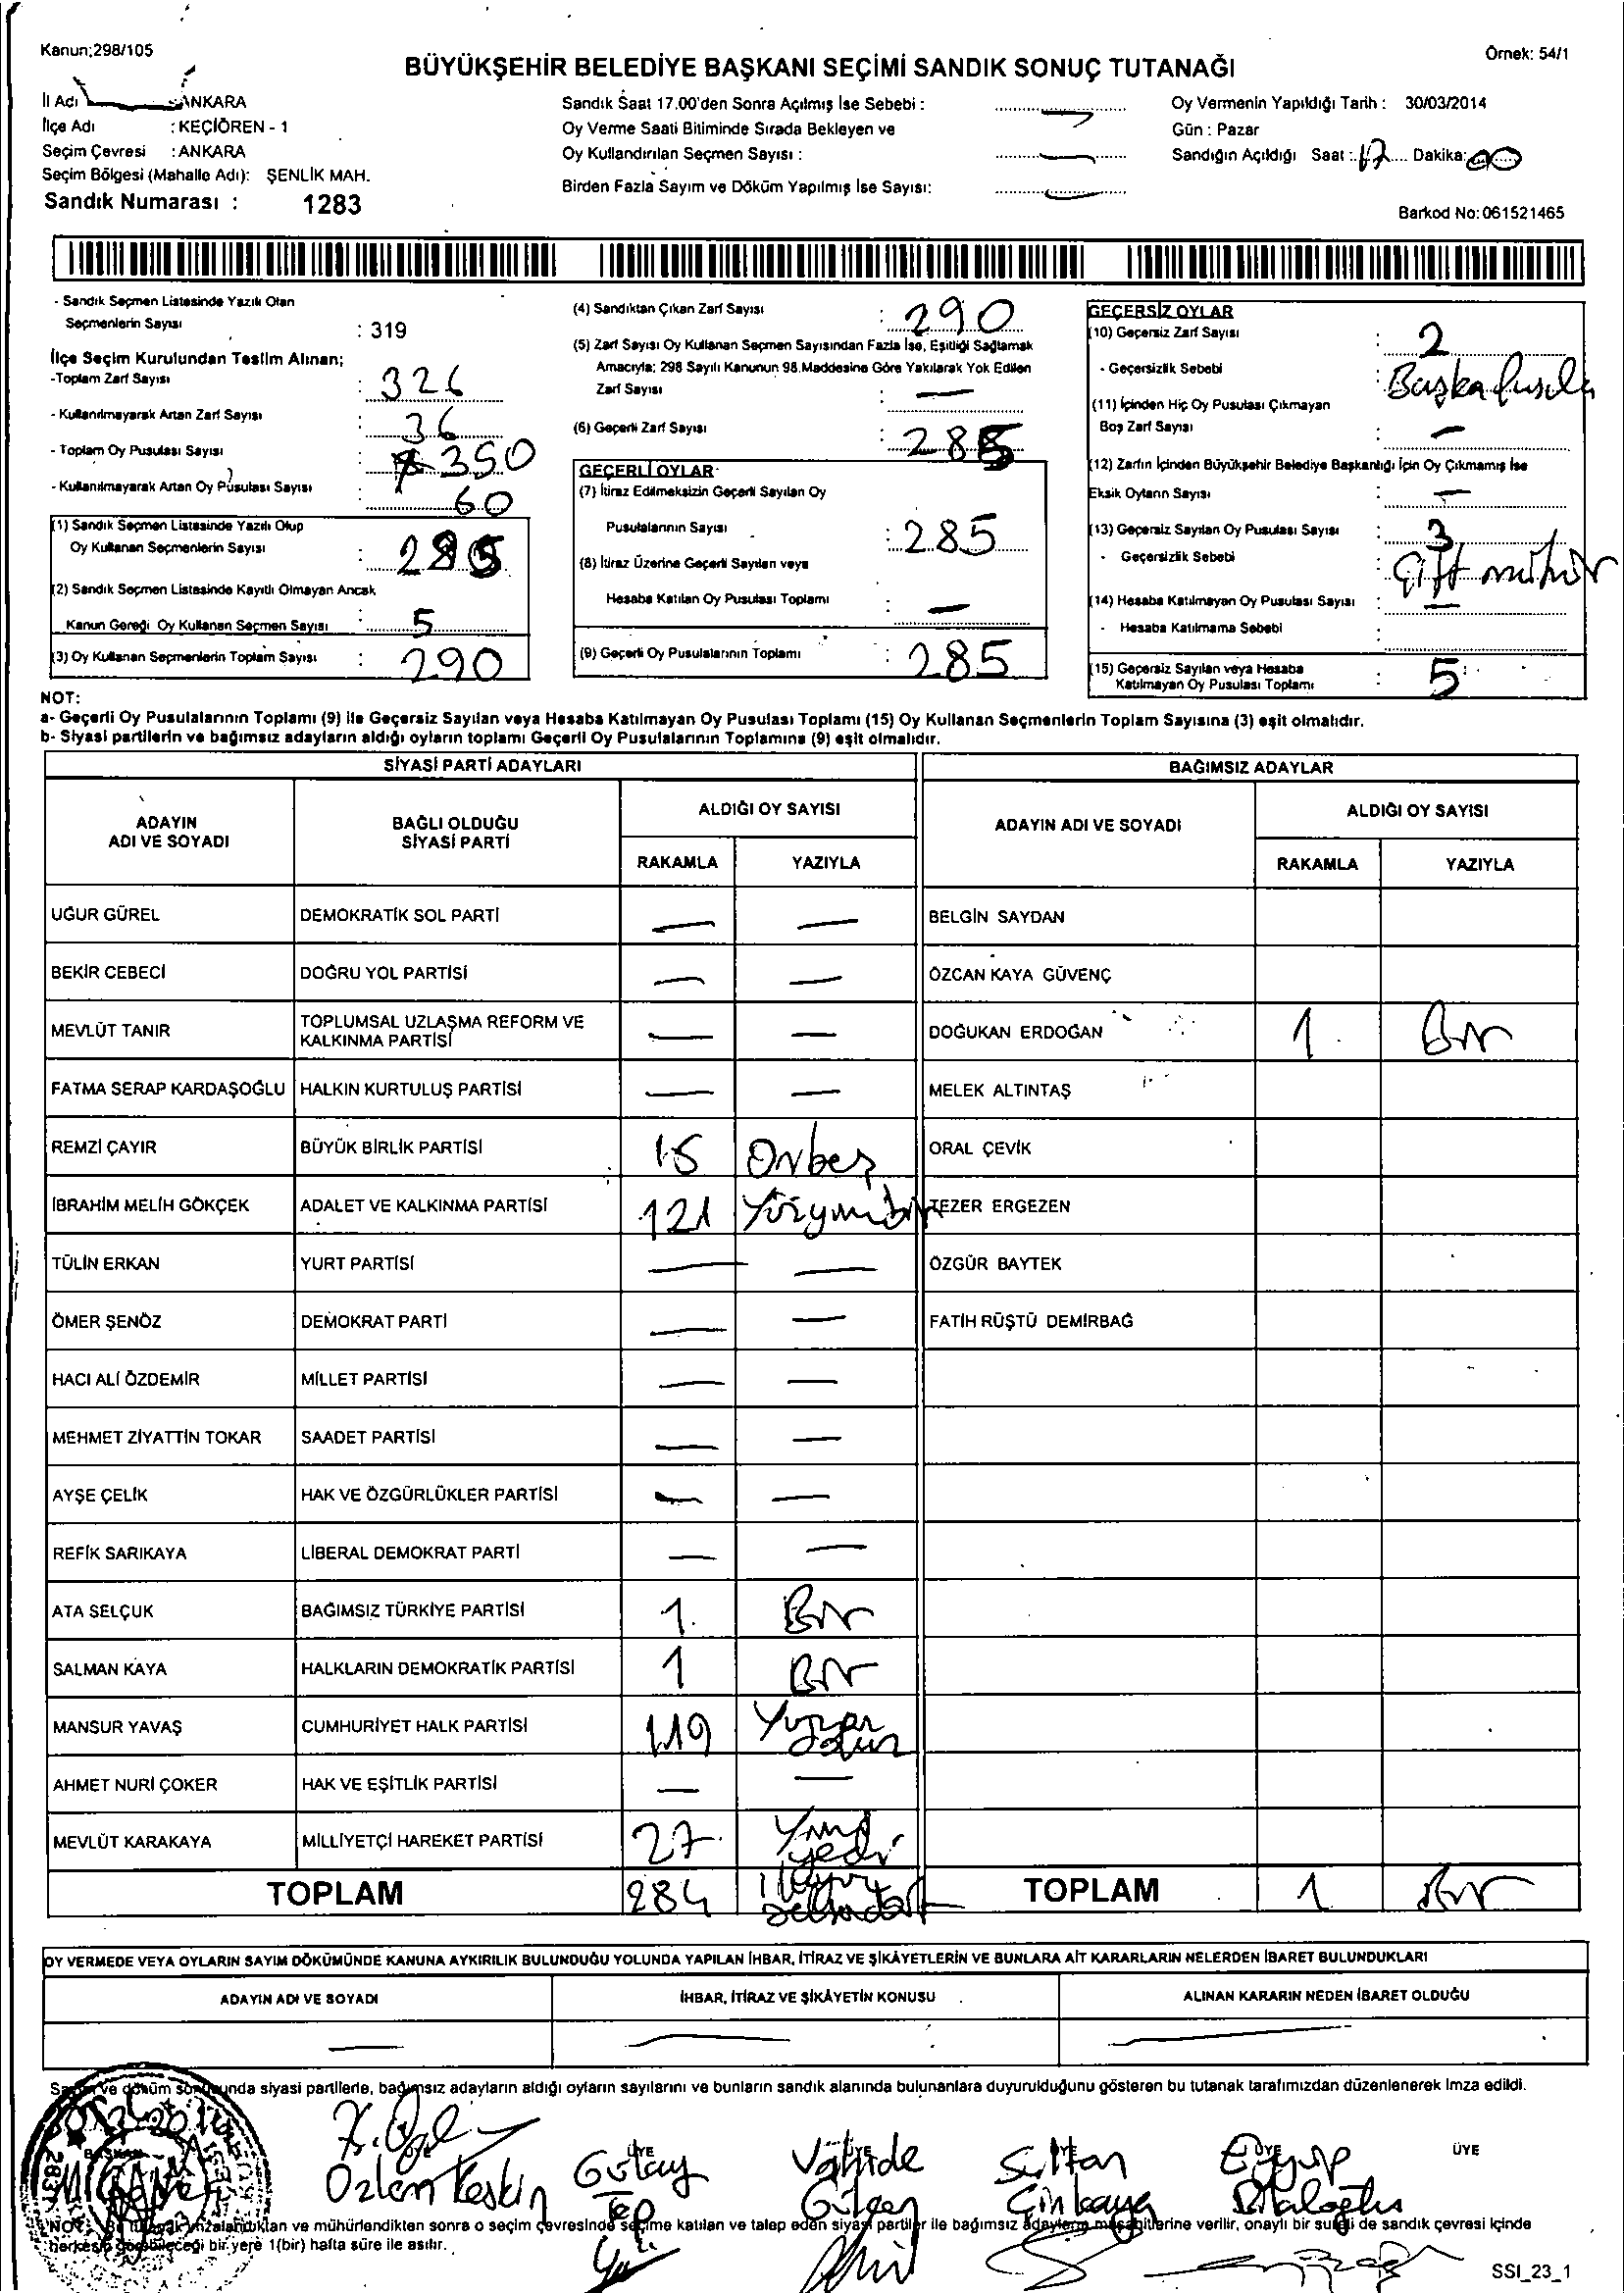 Kanun;298/105
Örnek: 54/1
BÜYÜKŞEHİR BELEDİYE BAŞKANI SEÇİMİ SANDIK SONUÇ TUTANAĞI
İl Adı : ANKARA
İlçe Adı : KEÇİÖREN - 1
Seçim Çevresi : ANKARA
Seçim Bölgesi (Mahalle Adı): ŞENLİK MAH.
Sandık Numarası : 1283
Sandık Saat 17.00'den Sonra Açılmış İse Sebebi :
Oy Verme Saati Bitiminde Sırada Bekleyen ve
Oy Kullandırılan Seçmen Sayısı :
Birden Fazla Sayım ve Döküm Yapılmış İse Sayısı:
Oy Vermenin Yapıldığı Tarih : 30/03/2014
Gün : Pazar
Sandığın Açıldığı Saat : 17 Dakika: 00
Barkod No: 061521465
- Sandık Seçmen Listesinde Yazılı Olan
Seçmenlerin Sayısı : 319
İlçe Seçim Kurulundan Teslim Alınan;
-Toplam Zarf Sayısı : 326
- Kullanılmayarak Artan Zarf Sayısı : 36
- Toplam Oy Pusulası Sayısı : 350
- Kullanılmayarak Artan Oy Pusulası Sayısı : 60
(1) Sandık Seçmen Listesinde Yazılı Olup
Oy Kullanan Seçmenlerin Sayısı : 285
(2) Sandık Seçmen Listesinde Kayıtlı Olmayan Ancak
Kanun Gereği Oy Kullanan Seçmen Sayısı : 5
(3) Oy Kullanan Seçmenlerin Toplam Sayısı : 290
(4) Sandıktan Çıkan Zarf Sayısı : 290
(5) Zarf Sayısı Oy Kullanan Seçmen Sayısından Fazla İse, Eşitliği Sağlamak
Amacıyla; 298 Sayılı Kanunun 98.Maddesine Göre Yakılarak Yok Edilen
Zarf Sayısı : —
(6) Geçerli Zarf Sayısı : 288
GEÇERLİ OYLAR
(7) İtiraz Edilmeksizin Geçerli Sayılan Oy
Pusulalarının Sayısı : 285
(8) İtiraz Üzerine Geçerli Sayılan veya
Hesaba Katılan Oy Pusulası Toplamı : —
(9) Geçerli Oy Pusulalarının Toplamı : 285
GEÇERSİZ OYLAR
(10) Geçersiz Zarf Sayısı : 2
- Geçersizlik Sebebi : Başka Pusula
(11) İçinden Hiç Oy Pusulası Çıkmayan
Boş Zarf Sayısı : —
(12) Zarfın İçinden Büyükşehir Belediye Başkanlığı İçin Oy Çıkmamış İse
Eksik Oyların Sayısı : —
(13) Geçersiz Sayılan Oy Pusulası Sayısı : 3
- Geçersizlik Sebebi : Çift mühür
(14) Hesaba Katılmayan Oy Pusulası Sayısı : —
- Hesaba Katılmama Sebebi :
(15) Geçersiz Sayılan veya Hesaba
Katılmayan Oy Pusulası Toplamı : 5
NOT:
a- Geçerli Oy Pusulalarının Toplamı (9) ile Geçersiz Sayılan veya Hesaba Katılmayan Oy Pusulası Toplamı (15) Oy Kullanan Seçmenlerin Toplam Sayısına (3) eşit olmalıdır.
b- Siyasi partilerin ve bağımsız adayların aldığı oyların toplamı Geçerli Oy Pusulalarının Toplamına (9) eşit olmalıdır.
SİYASİ PARTİ ADAYLARI
ADAYIN ADI VE SOYADI BAĞLI OLDUĞU SİYASİ PARTİ ALDIĞI OY SAYISI
RAKAMLA YAZIYLA
UĞUR GÜREL DEMOKRATİK SOL PARTİ — —
BEKİR CEBECİ DOĞRU YOL PARTİSİ — —
MEVLÜT TANIR TOPLUMSAL UZLAŞMA REFORM VE KALKINMA PARTİSİ — —
FATMA SERAP KARDAŞOĞLU HALKIN KURTULUŞ PARTİSİ — —
REMZİ ÇAYIR BÜYÜK BİRLİK PARTİSİ 15 Onbeş
İBRAHİM MELİH GÖKÇEK ADALET VE KALKINMA PARTİSİ 121 Yüzyirmibir
TÜLİN ERKAN YURT PARTİSİ — —
ÖMER ŞENÖZ DEMOKRAT PARTİ — —
HACI ALİ ÖZDEMİR MİLLET PARTİSİ — —
MEHMET ZİYATTİN TOKAR SAADET PARTİSİ — —
AYŞE ÇELİK HAK VE ÖZGÜRLÜKLER PARTİSİ — —
REFİK SARIKAYA LİBERAL DEMOKRAT PARTİ — —
ATA SELÇUK BAĞIMSIZ TÜRKİYE PARTİSİ 1 Bir
SALMAN KAYA HALKLARIN DEMOKRATİK PARTİSİ 1 Bir
MANSUR YAVAŞ CUMHURİYET HALK PARTİSİ 119
AHMET NURİ ÇOKER HAK VE EŞİTLİK PARTİSİ — —
MEVLÜT KARAKAYA MİLLİYETÇİ HAREKET PARTİSİ 27 Yirmi yedi
TOPLAM 284
BAĞIMSIZ ADAYLAR
ADAYIN ADI VE SOYADI ALDIĞI OY SAYISI
RAKAMLA YAZIYLA
BELGİN SAYDAN
ÖZCAN KAYA GÜVENÇ
DOĞUKAN ERDOĞAN 1 Bir
MELEK ALTINTAŞ
ORAL ÇEVİK
TEZER ERGEZEN
ÖZGÜR BAYTEK
FATİH RÜŞTÜ DEMİRBAĞ
TOPLAM 1 Bir
OY VERMEDE VEYA OYLARIN SAYIM DÖKÜMÜNDE KANUNA AYKIRILIK BULUNDUĞU YOLUNDA YAPILAN İHBAR, İTİRAZ VE ŞİKÂYETLERİN VE BUNLARA AİT KARARLARIN NELERDEN İBARET BULUNDUKLARI
ADAYIN ADI VE SOYADI İHBAR, İTİRAZ VE ŞİKÂYETİN KONUSU ALINAN KARARIN NEDEN İBARET OLDUĞU
Sayım ve döküm sonucunda siyasi partilerle, bağımsız adayların aldığı oyların sayılarını ve bunların sandık alanında bulunanlara duyurulduğunu gösteren bu tutanak tarafımızdan düzenlenerek imza edildi.
BAŞKAN ÜYE ÜYE ÜYE ÜYE ÜYE
Özlem Keskin
Gülay Tep
Vahide Gülçen
Sultan Çinkaya
Eyyüp
NOT: Bu tutanak imzalandıktan ve mühürlendikten sonra o seçim çevresinde seçime katılan ve talep eden siyasi partiler ile bağımsız adayların müşahitlerine verilir, onaylı bir sureti de sandık çevresi içinde
herkesin görebileceği bir yere 1(bir) hafta süre ile asılır.
SSI_23_1